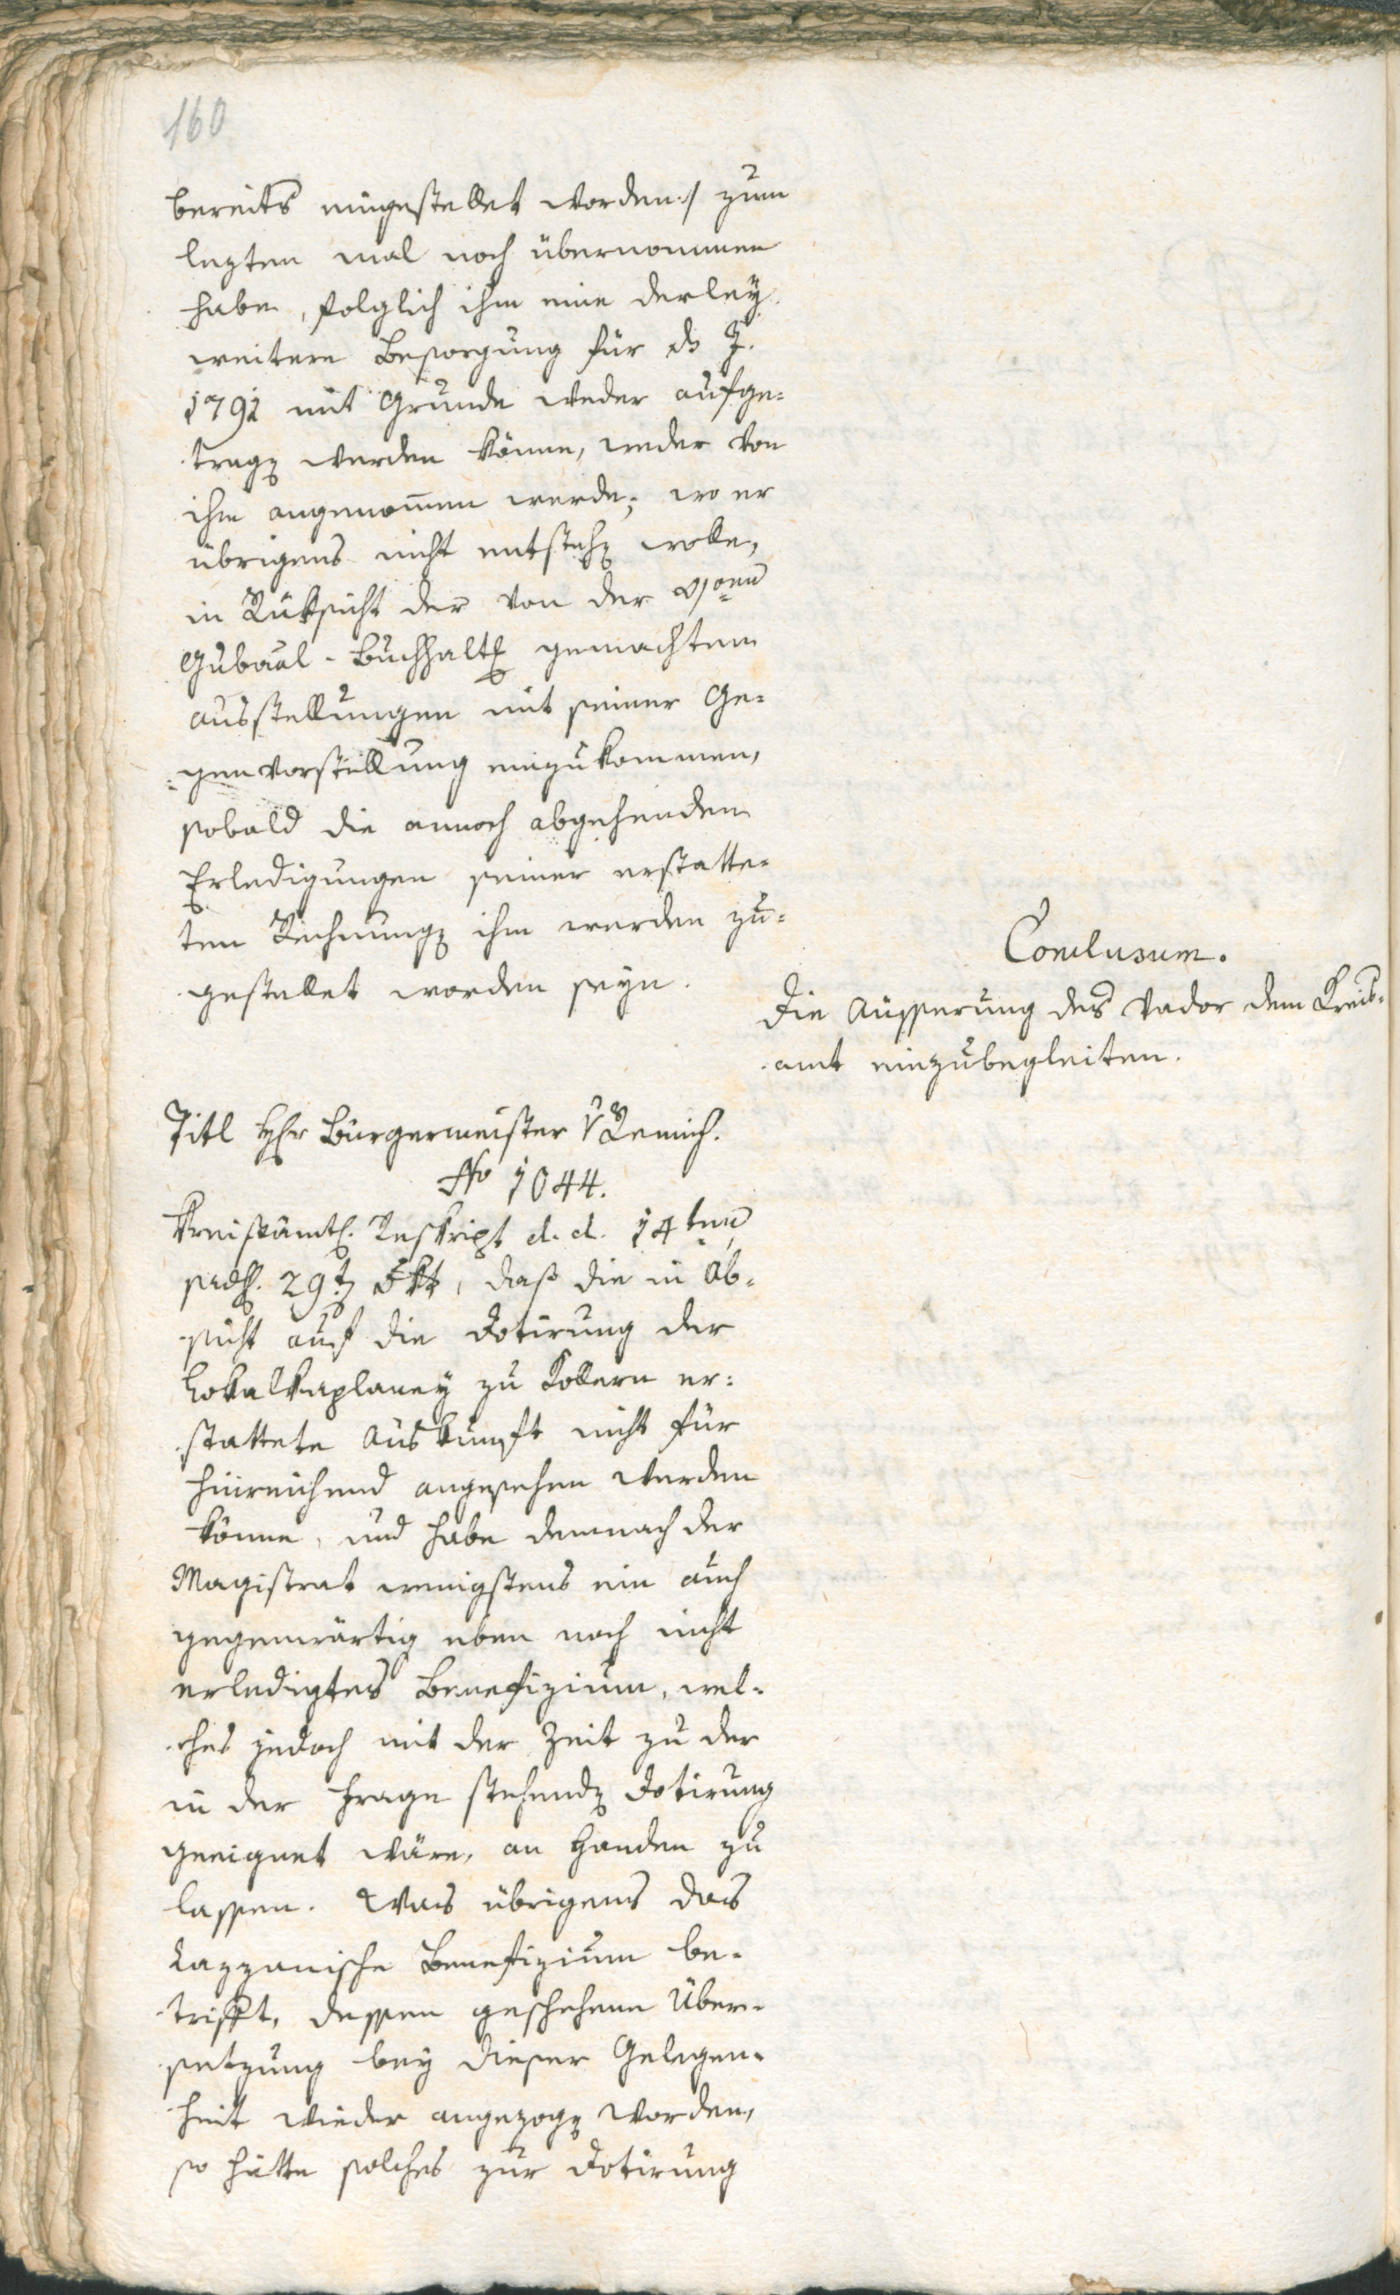 160
bereits eingestellet worden./ zum
lezten mal noch übernommen
habe, folglich ihm eine derley
weitere Besorgung für ds J.
1791 mit Grunde weder aufge-
tragen werden könne, weder von
ihm angenom̄en werde; wo er
übrigens nicht entstehen wolle,
in Rüksicht der von der
Gub̄aal-Buchhalt. gemachten
Ausstellungen mit seiner Ge-
genvorstellung einzukommen,
sobald die annoch abgehenden
Erledigungen seiner erstatte-
ten Rechnungen ihm werden zu-
gestellet worden seyn.
Conclusum.
Die Äusserung des Vador dem Kreis-
amt einzubegleiten.
Titl Hr Bürgermeister v Remich.
No 1044.
Kreisämtl. Reskript d. d. 14ten,
29t. 8br, daß die in Ab-
sicht auf die Dotirung der
Lokalkaplaney zu Kollern er-
stattete Auskunft nicht für
hinreichend angesehen werden
könne, und habe demnach der
Magistrat wenigstens ein auch
gegenwärtig eben noch nicht
erledigtes Benefizium, wel-
ches jedoch mit der Zeit zu der
in der Frage stehenden Dotirung
geeignet wäre, an Handen zu
lassen. Was übrigens das
Lazzanische Benefizium be-
trifft, dessen geschehene Über-
setzung bey dieser Gelegen-
heit wieder angezogen worden,
so hätte solches zur Dotirung